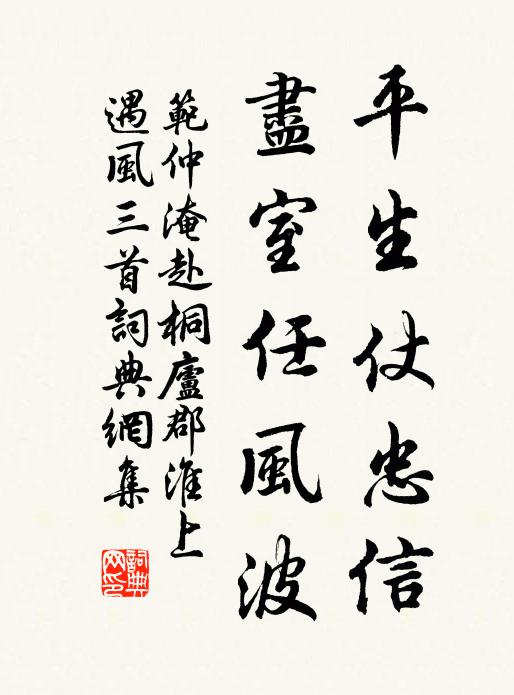 平生仗忠信
盡室任風波
範仲淹赴桐廬郡淮上
遇風三首詞典網集
詞典
网印